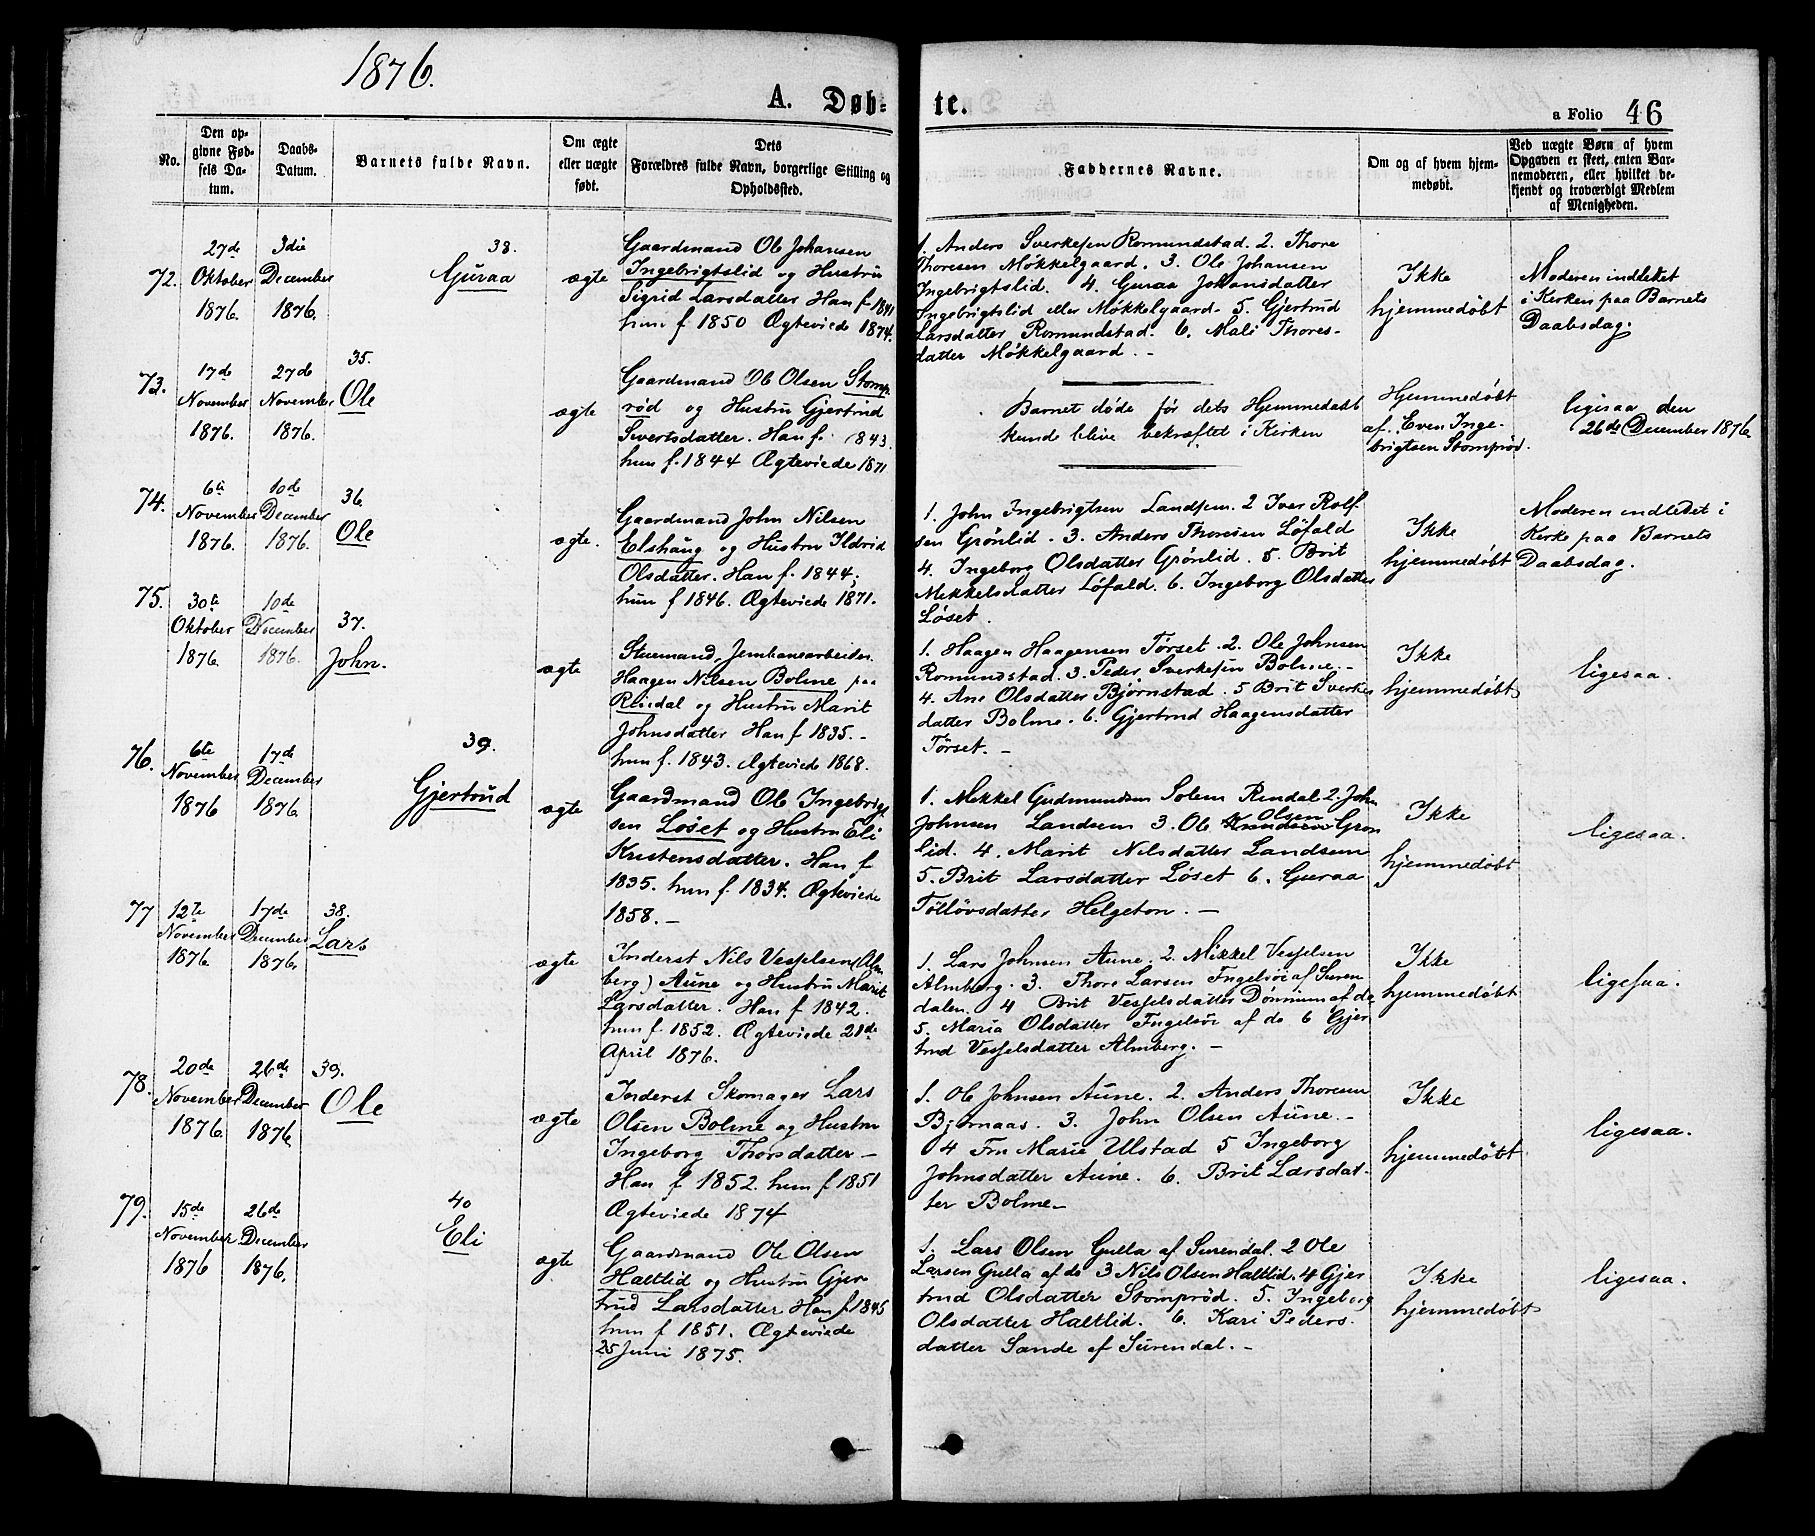 1876.
A. Døb-
te.
a Folio 46
No.
Den op-
givne Fød-
sels Da-
tum.
Daabs-
Datum.
Barnets fulde Navn.
Om ægte
eller uægte
født.
Dets
Forældres fulde Navn, borgerlige Stilling og
Opholdssted.
Faddernes Navne.
Om og af hvem hjem-
medøbt.
Ved uægte Børn af hvem
Opgaven er skeet, enten Bar-
nemoderen, eller hvilket be-
kjendt og troværdigt Medlem
af Menigheden.
72.
27de
Oktober
1876.
3die
December
1876.
38.
Guraa
ægte
Gaardmand Ole Johansen
Ingebrigtslid og Hustru
Sigrid Larsdatter Han f 1841
hun f 1850 Ægteviede 1874.
1. Anders Sverkesen Romundstad. 2. Thore
Thoresen Møkkelgaard. 3. Ole Johansen
Ingebrigtslid. 4. Guraa Johansdatter
Ingebrigtslid eller Møkkelgaard. 5. Gjertrud
Larsdatter Romundstad. 6. Mali Thores-
datter Møkkelgaard. –
Ikke
hjemmedøbt
Moderen indledet
i Kirken paa Barnets
Daabsdag.
73.
17de
November
1876.
27de
November
1876.
35.
Ole
ægte
Gaardmand Ole Olsen Stomp.
rød og Hustru Gjertrud
Sivertsdatter. Han f. 1843.
hun f. 1844 Ægteviede 1871
Barnet døde før dets Hjemmedaab
kunde blive bekræftet i Kirken
Hjemmedøbt
af. Even Inge-
brigtsen Stomprød.
ligesaa den
26de December 1876.
74.
6te
November
1876.
10de
December
1876.
36.
Ole
ægte.
Gaardmand John Nilsen
Elshaug og Hustru Ildrid
Olsdatter. Han f. 1844;
hun f 1846. Ægteviede 1871.
1. John Ingebrigtsen Landsem. 2 Iver Rolf-
sen Grønlid. 3. Anders Thoresen Løfald
4. Ingeborg Olsdatter Grønlid. 5. Brit
Mekkelsdatter Løfald. 6. Ingeborg Olsdatter
Løset.
Ikke
hjemmedøbt
Moderen indledet i
Kirke paa Barnets
Daabsdag.
75.
30te
Oktober
1876.
10de
December
1876.
37.
John.
ægte
Stuemand, Jernbanearbeider
Haagen Nilsen Bolme paa
Rindal og Hustru Marit
Johnsdatter Han f 1835. –
hun f. 1843. Ægteviede 1868.
1. Haagen Haagensen Tørset. 2. Ole Johnsen
Romundstad. 3. Peder Sverkesen Bolme. –
4. Ane Olsdatter Bjørnstad. 5 Brit Sverkes
datter Bolme. 6. Gjertrud Haagensdatter
Tørset. –
Ikke
hjemmedøbt
ligesaa.
76.
6te
November
1876
17de
December
1876.
39.
Gjertrud
ægte
Gaardmand Ole Ingebrigt
sen Løset og Hustru Eli
Kristensdatter. Han f
1835. hun f. 1834. Ægteviede
1858. –
1. Mekkel Gudmundsen Solem Rindal 2. John
Johnsen Landsem 3. Ole Knudsen Olsen Grøn
lid. 4. Marit Nilsdatter Landsem
5. Brit Larsdatter Løset 6. Guraa
Tølløvsdatter Helgeton. –
Ikke
hjemmedøbt
ligesaa.
77
12te
November
1876.
17de
December
1876.
38.
Lars
ægte
Inderst Nils Vesselsen (Alm
berg) Aune og Hustru Marit
Larsdatter. Han f 1842.
hun f. 1852. Ægteviede 21de
April 1876.
1. Lars Johnsen Aune. 2. Mikkel Vesselsen
Almberg. 3. Thore Larsen Engelsøi af Suren
dalen. 4 Brit Vesselsdatter Dønnium af do
5. Maria Olsdatter Engelsøi af do 6 Gjer
trud Vesselsdatter Almberg. –
Ikke
hjemmedøbt
ligesaa.
78.
20de
November
1876.
26de
December
1876
39.
Ole
ægte
Inderst Skomager Lars
Olsen Bolme og Hustru
Ingeborg Thorsdatter –
Han f 1852. hun f 1851
Ægteviede 1874
1. Ole Johnsen Aune. 2. Anders Thoresen
Bjørnaas. 3. John Olsen Aune. –
4 Fru Marie Ulstad 5 Ingeborg
Johnsdatter Aune. 6. Brit Larsdat-
ter Bolme –
Ikke
hjemmedøbt
ligesaa.
79.
15de
November
1876
26de
December
1876.
40
Eli
ægte
Gaardmand Ole Olsen
Haltlid og Hustru Gjer
trud Larsdatter Han f. 1845
hun f 1851. Ægteviede
25 Juni 1875.
1. Lars Olsen Gulla af Surendal. 2 Ole
Larsen Gulla af do 3 Nils Olsen Haltlid. 4 Gjer
trud Olsdatter Stomprød. 5. Ingeborg
Olsdatter Haltlid. 6. Kari Peders.
datter Sande af Surendal. –
Ikke
hjemmedøbt
ligesaa.